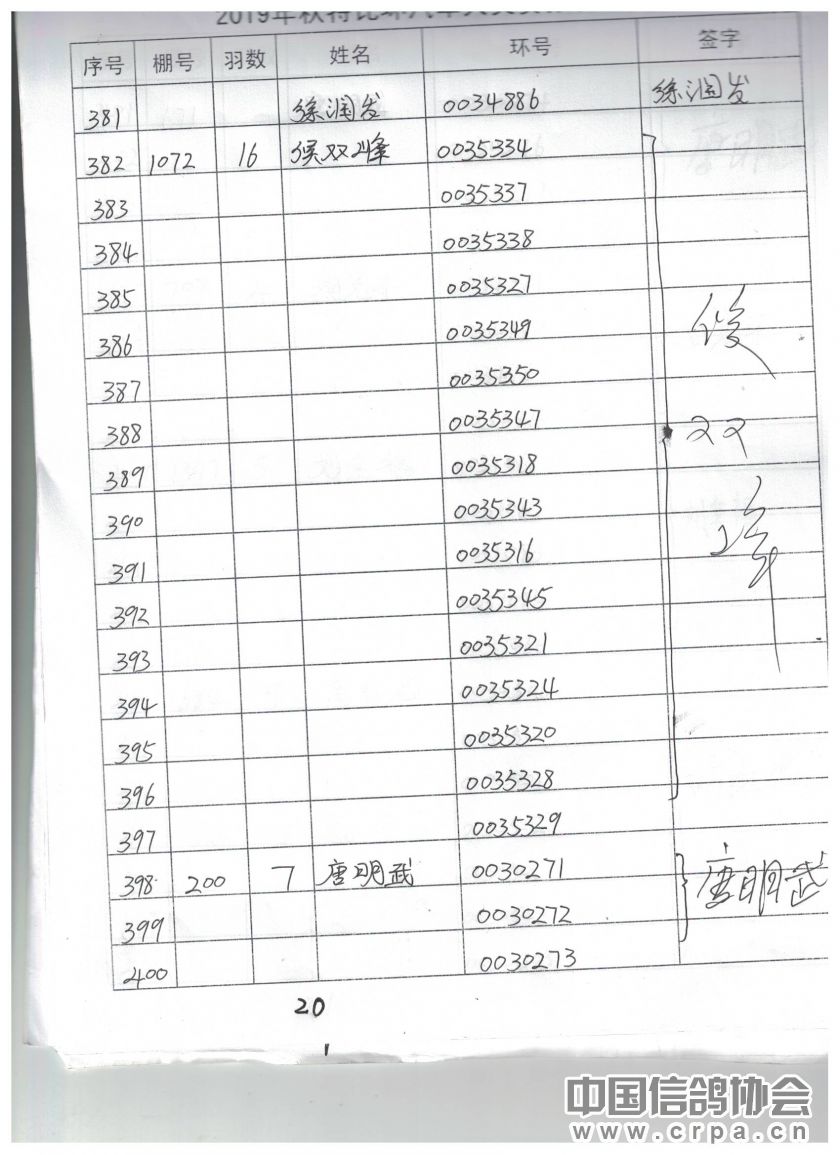 序号 棚号 羽数 姓名 环号 签字
381 徐润发 0034886 徐润发
382 1072 16 侯双峰 0035334
383 0035337
384 0035338
385 0035327
386 0035349
387 0035350
388 0035347
389 0035318
390 0035343
391 0035316
392 0035345
393 0035321
394 0035324
395 0035320
396 0035328
397 0035329
侯双峰
398 200 7 唐明武 0030271 唐明武
399 0030272
400 0030273
20
中国信鸽协会
www.crpa.cn